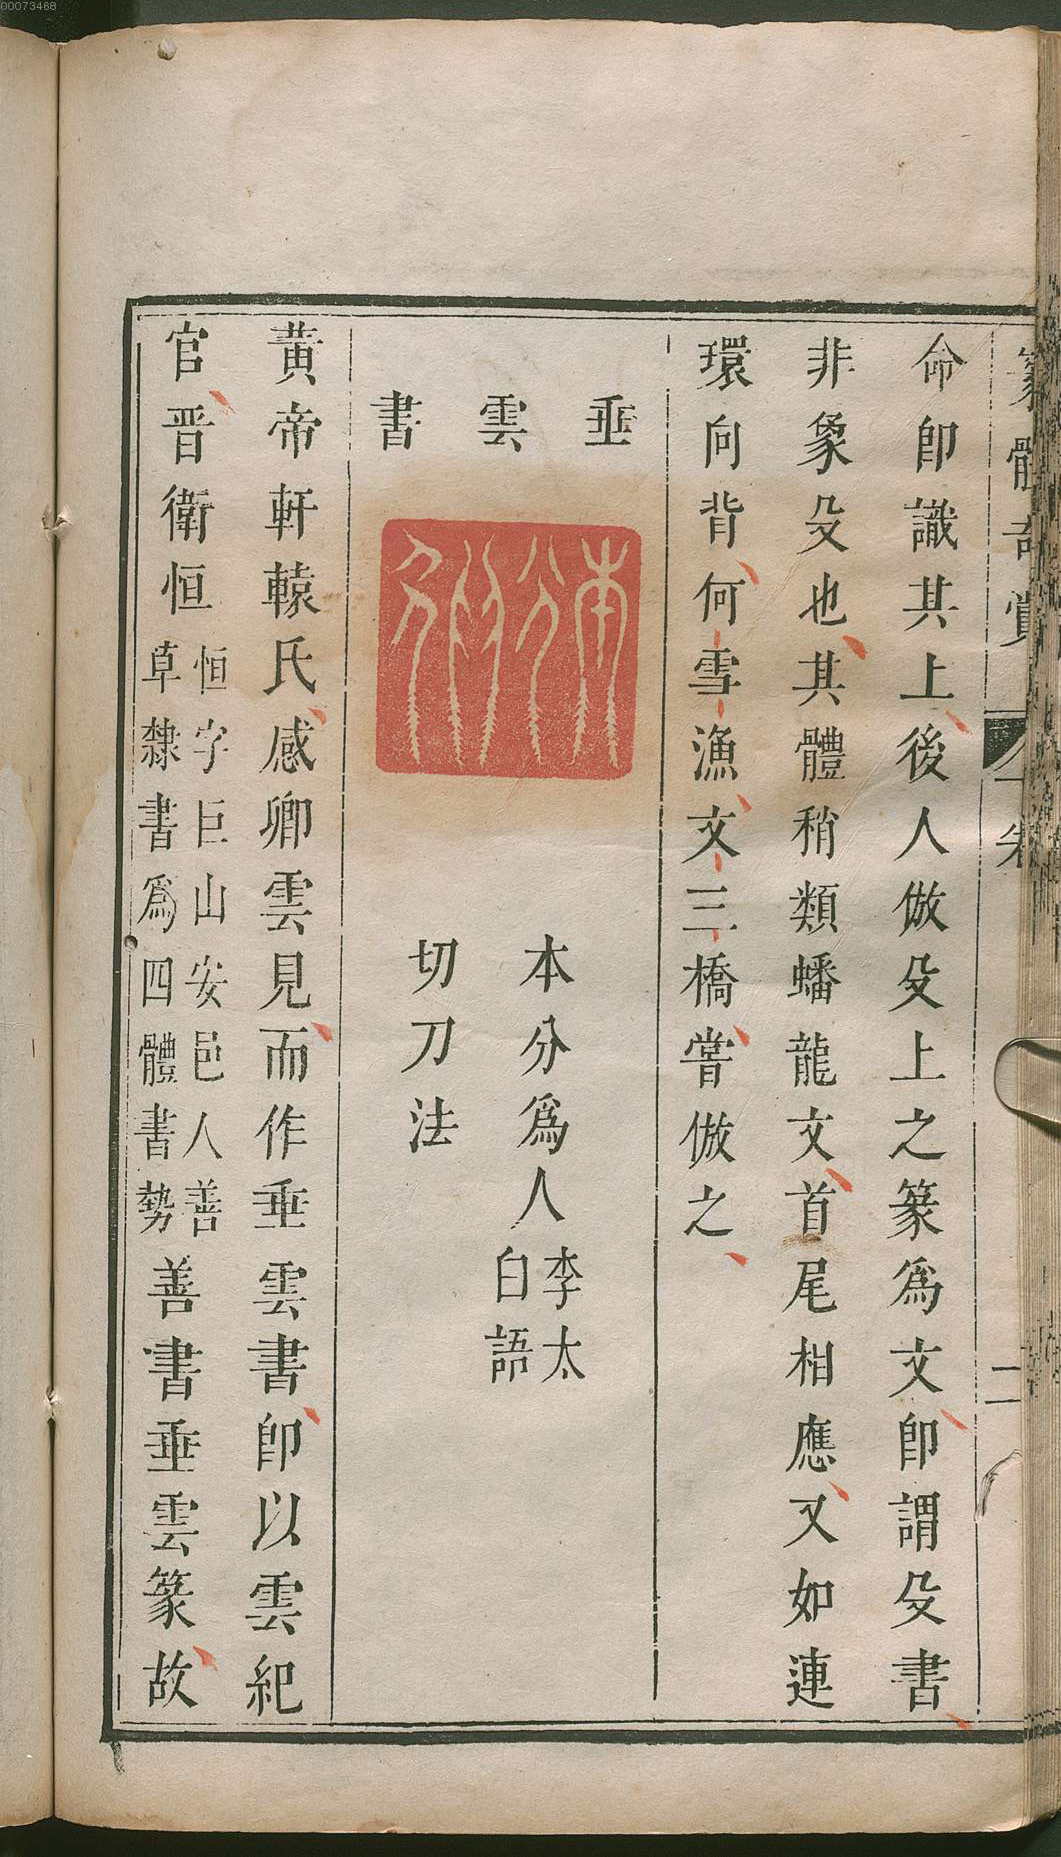 00073468
篆體奇賞
一卷
二
命卽識其上後人倣殳上之篆爲文卽謂殳書
非象殳也其體稍類蟠龍文首尾相應又如連
環向背何雪漁文三橋嘗倣之
垂雲書
本分爲人李太白語
切刀法
黃帝軒轅氏感卿雲見而作垂雲書卽以雲紀
官晉衛恒恒字巨山安邑人善草隸書爲四體書勢善書垂雲篆故